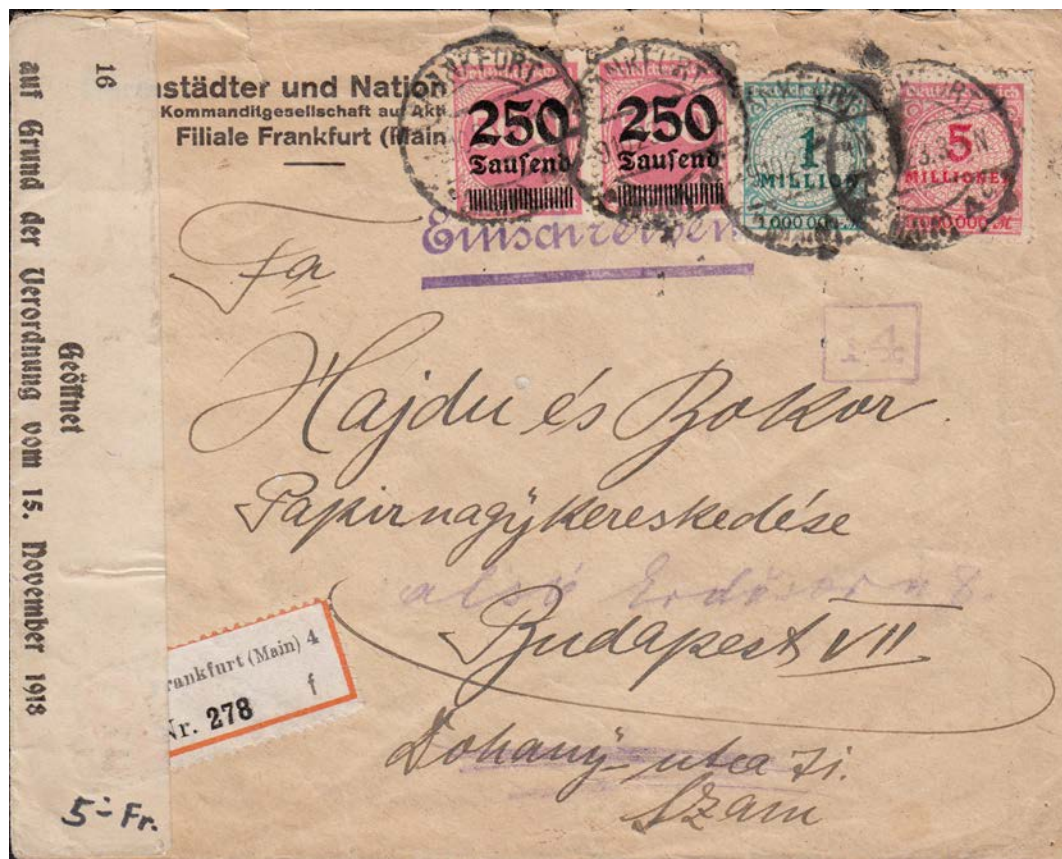 16
Geöffnet
auf Grund der Verordnung vom 15. November 1918
5-Fr.
städter und Nation
Kommanditgesellschaft auf Akti
Filiale Frankfurt (Main
250 Tausend
250 Tausend
1 MILLION
5 MILLIONEN
Einschreiben
14
Fa
Hajdu és Bokor
Papirnagykereskedése
alsó Erdősor u 8.
Budapest VII
Dohány utca 71.
szám
rankfurt (Main) 4
f
Nr. 278